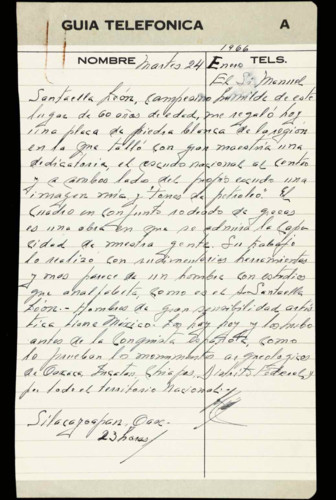 GUIA TELEFONICA A
1966
NOMBRE Martes 24 Enero TELS.
El Sr. Manuel
Santaella León, campesino humilde de este
lugar de 60 años de edad, me regaló hoy
una placa de piedra blanca de la región
en la que talló con gran maestría una
dedicatoria, el escudo nacional al centro
y a ambos lados del propio escudo una
imagen mía y "Torres de petróleo". El
cuadro en conjunto rodeado de grecas
es una obra en que se admira la capa-
cidad de nuestra gente. Su trabajo
lo realizó con rudimentarias herramientas
y mas parece de un hombre con estudios
que analfabeta, como es el Sr. Santaella
León.- Hombres de gran sensibilidad artís-
tica tiene México. Los hay hoy y los hubo
antes de la Conquista Española, como
lo prueban los monumentos arqueológicos
de Oaxaca, Yucatán, Chiapas, Distrito Federal y
por todo el territorio Nacional.-
Silacayoapan, Oax.-
23 horas